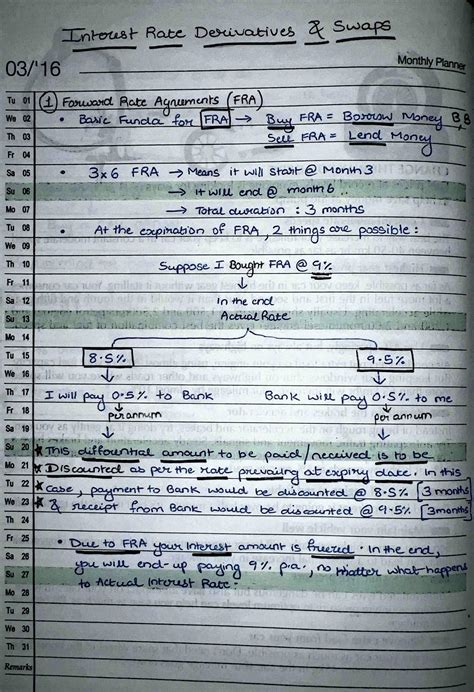 Interest Rate Derivatives & Swaps
03/'16
Monthly Planner
Tu 01 ① Forward Rate Agreements (FRA)
We 02 • Basic Funda for FRA → Buy FRA = Borrow Money B,B
Th 03 Sell FRA = Lend Money
Fr 04
Sa 05 • 3x6 FRA → Means it will start @ Month 3
Su 06 → it will end @ month 6
Mo 07 → Total duration : 3 months
Tu 08 • At the expiration of FRA, 2 things are possible :
We 09
Th 10 Suppose I Bought FRA @ 9%
Fr 11 ↓
Sa 12 In the end
Su 13 Actual Rate
Mo 14
Tu 15 8.5% 9.5%
We 16 ↓ ↓
Th 17 I will pay 0.5% to Bank Bank will pay 0.5% to me
Fr 18 per annum per annum
Sa 19 ↓ ↓
Su 20 ★ This differential amount to be paid/received is to be
Mo 21 ★ Discounted as per the rate prevailing at expiry date. In this
Tu 22 ★ case, payment to Bank would be discounted @ 8.5% [3 months]
We 23 ★ & receipt from Bank would be discounted @ 9.5% [3 months]
Th 24
Fr 25 • Due to FRA your interest amount is freezed. In the end,
Sa 26 you will end-up paying 9% p.a., no matter what happens
Su 27 to Actual Interest Rate.
Mo 28
Tu 29
We 30
Th 31
Remarks